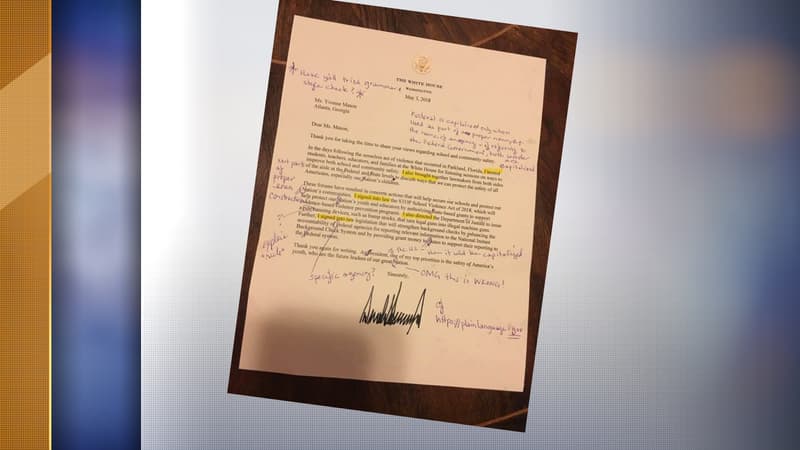 THE WHITE HOUSE
WASHINGTON
May 3, 2018
* Have y'all tried grammar &
style check? *
Ms. Yvonne Mason
Atlanta, Georgia
Federal is capitalized only when
used as part of a proper noun
Federal Government, both
capitalized
Dear Ms. Mason,
Thank you for taking the time to share your views regarding school and community safety.
In the days following the senseless act of violence that occurred in Parkland, Florida, I hosted
students, teachers, educators, and families at the White House for listening sessions on ways to
improve both school and community safety. I also brought together lawmakers from both sides
of the aisle at the Federal and State levels to discuss ways that we can protect the safety of all
Americans, especially our Nation's children.
Not part
of
proper
noun
construction
These forums have resulted in concrete actions that will help secure our schools and protect our
Nation's communities. I signed into law the STOP School Violence Act of 2018, which will
help protect our Nation's youth and educators by authorizing State-based grants to support
evidence-based violence prevention programs. I also directed the Department of Justice to issue
a
banning devices, such as bump stocks, that turn legal guns into illegal machine guns.
Further, I signed into law legislation that will strengthen background checks by enhancing the
accountability of Federal agencies for reporting relevant information to the National Instant
Background Check System and by providing grant money to States to support their reporting to
the Federal system.
explain
"rule"
Thank you again for writing. As President, one of my top priorities is the safety of America's
youth, who are the future leaders of our great Nation.
OMG this is WRONG!
specific agency?
Sincerely,
cf
https://plainlanguage.gov